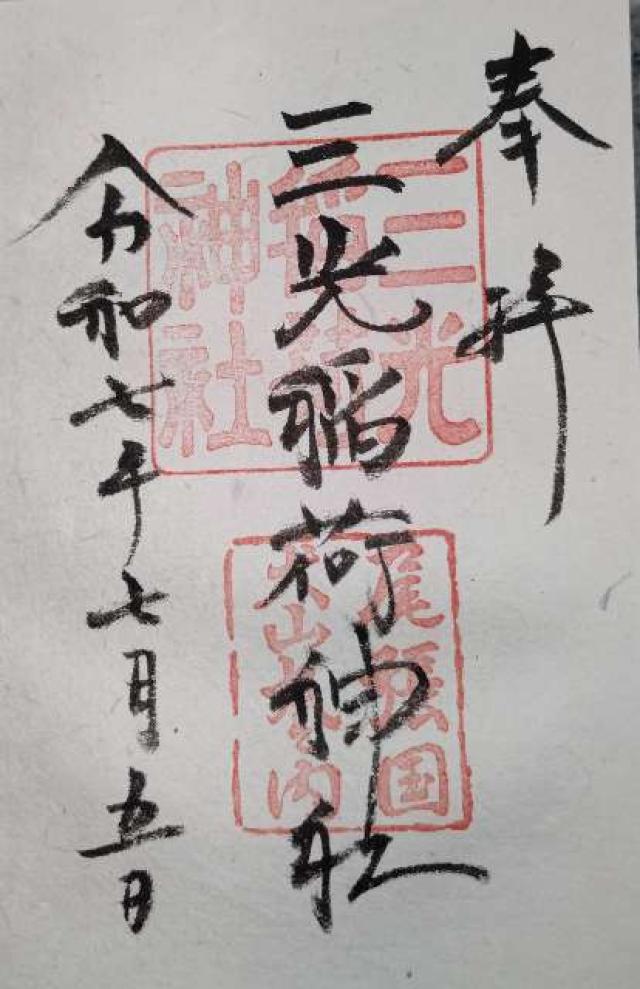 奉拝
三光稲荷神社
令和七年七月五日
三光
稲荷
神社
尾張国
犬山城内